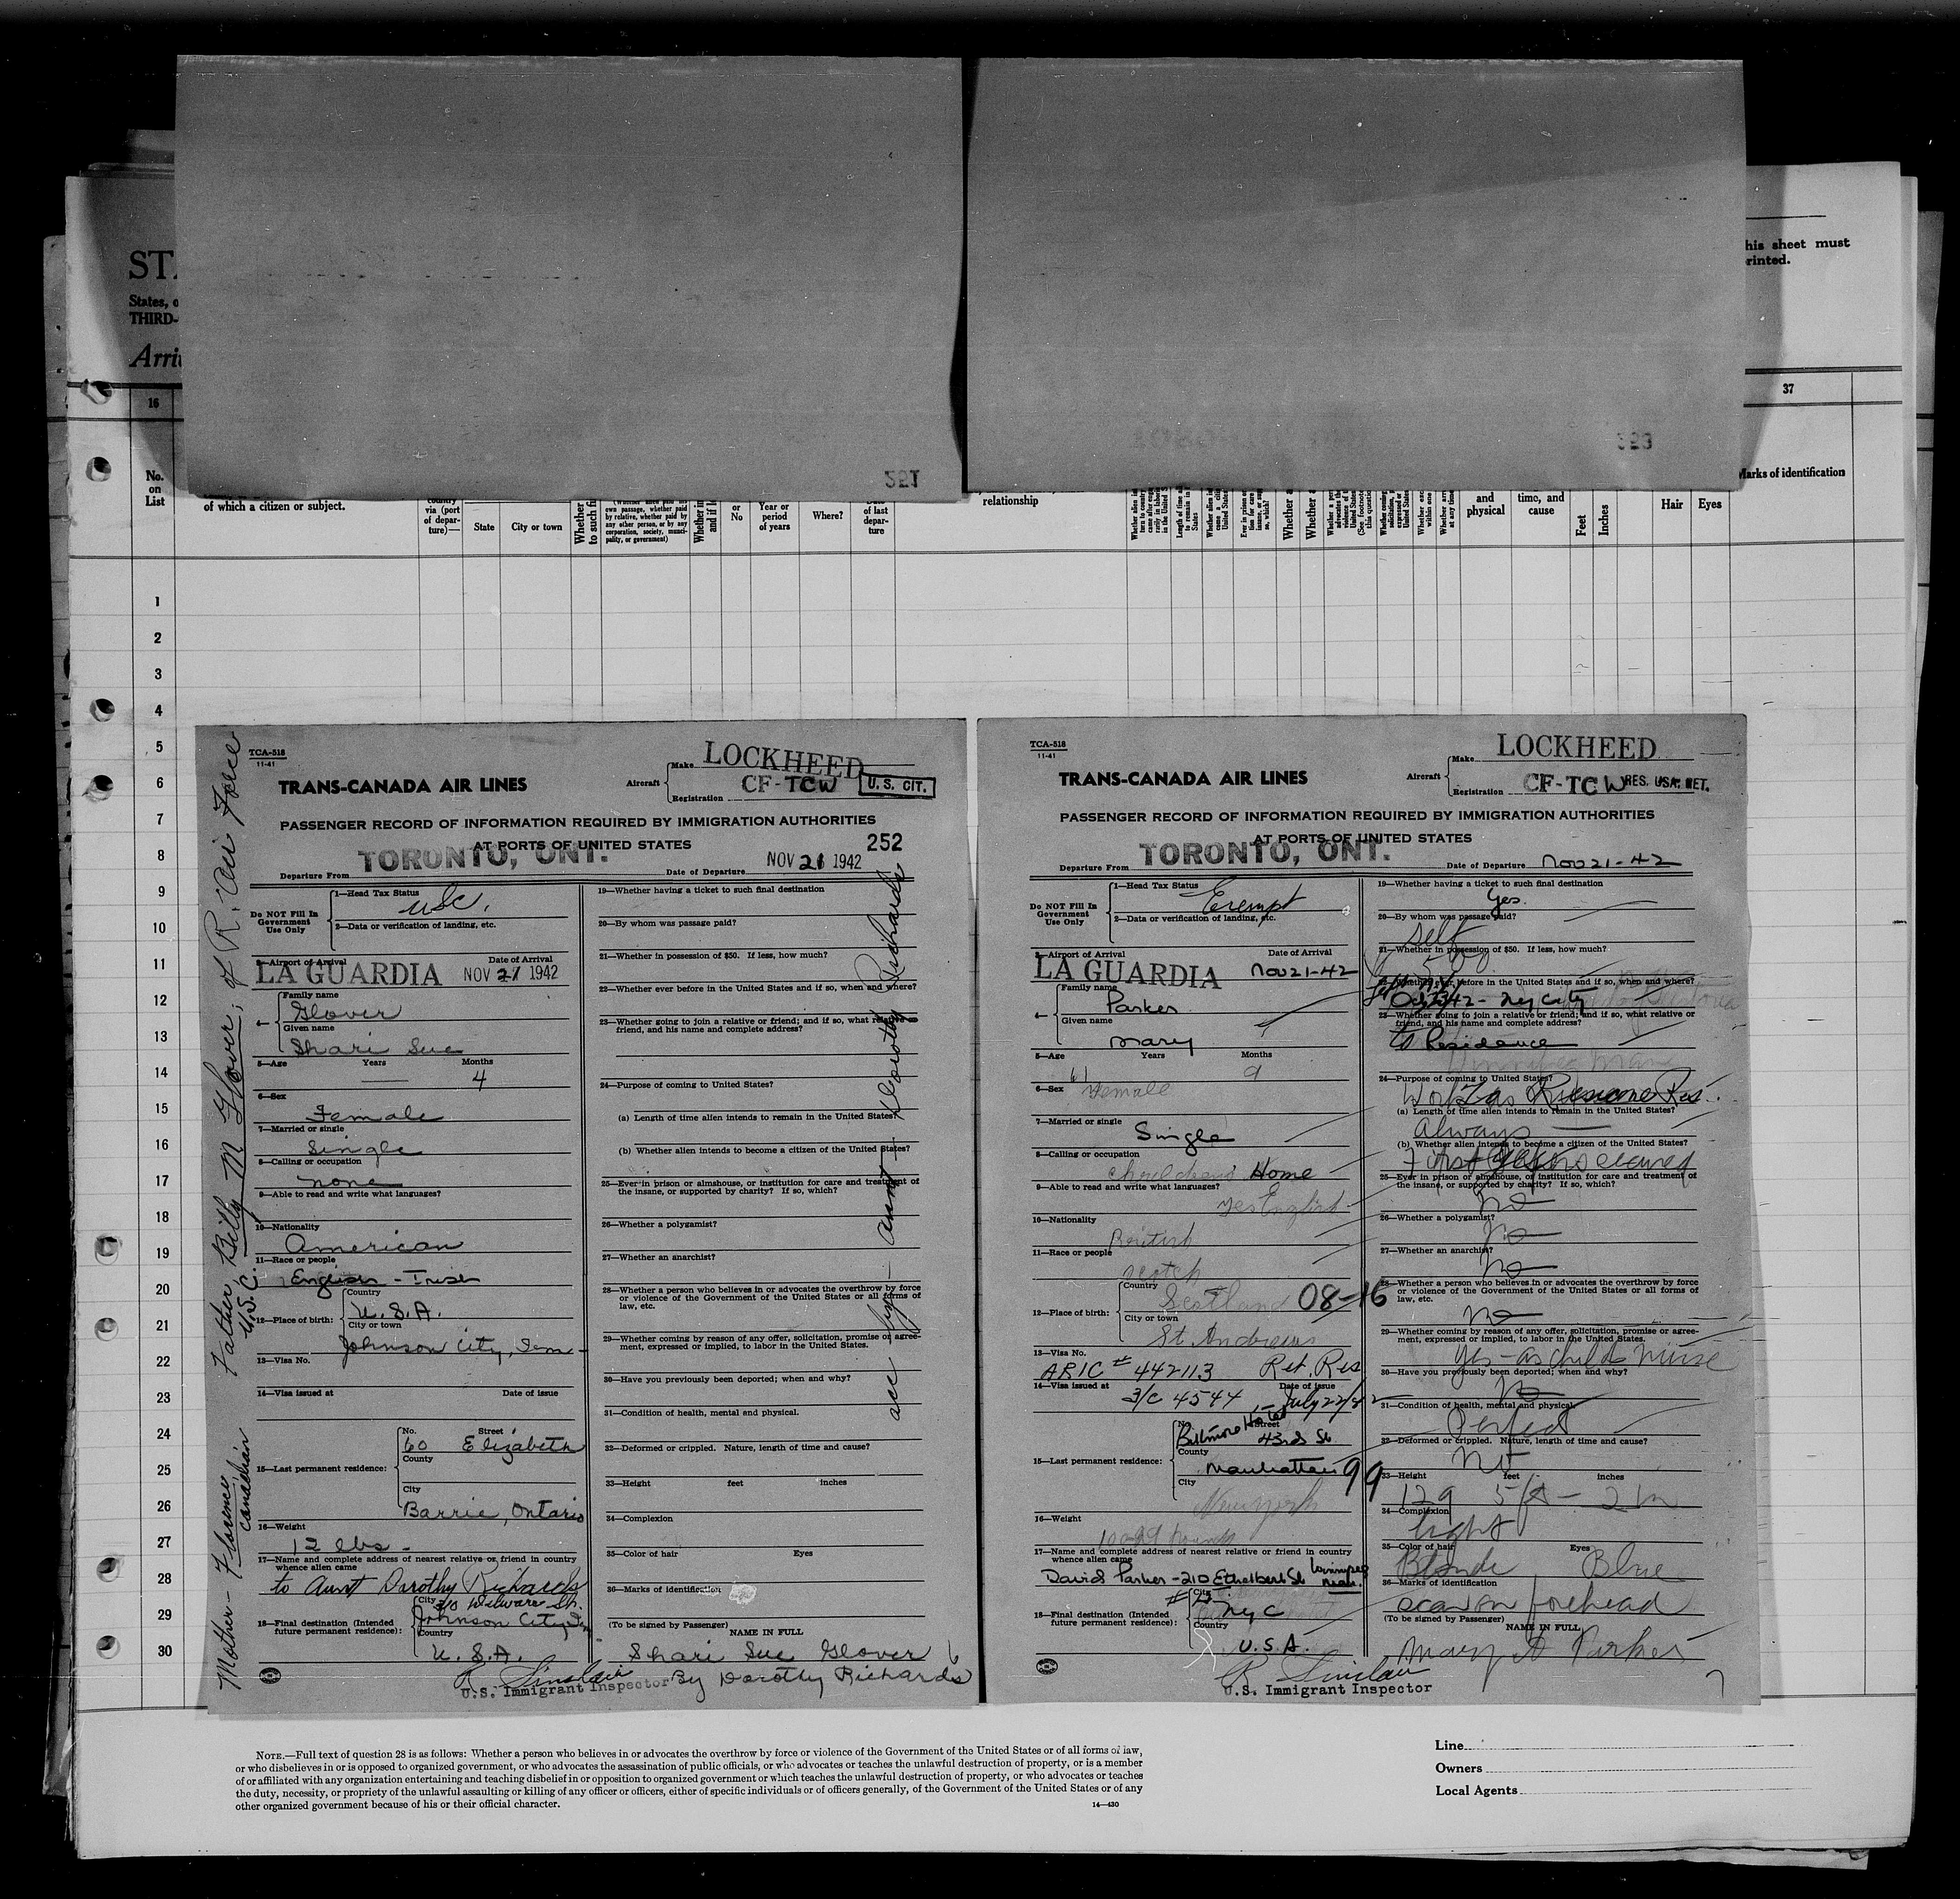 his sheet must
rinted.
States, o
THIRD-
16
37
No.
on
List
of which a citizen or subject.
country
via (port
of depar-
ture)—
State
City or town
or
No
Year or
period
of years
Where?
of last
depar-
ture
relationship
and
physical
time, and
cause
Feet
Inches
Hair
Eyes
Marks of identification
1
2
3
4
5
6
7
8
9
10
11
12
13
14
15
16
17
18
19
20
21
22
23
24
25
26
27
28
29
30
Mother - Florence Canadian
Father Billy M Glover; of R. Air Force
U.S.C.
TCA-518
11-41
TRANS-CANADA AIR LINES
Aircraft
Make LOCKHEED
Registration CF-TCW
U. S. CIT.
PASSENGER RECORD OF INFORMATION REQUIRED BY IMMIGRATION AUTHORITIES
AT PORTS OF UNITED STATES
252
Departure From TORONTO, ONT.
Date of Departure NOV 21 1942
Do NOT Fill In
Government
Use Only
1—Head Tax Status
USC.
2—Data or verification of landing, etc.
3—Airport of Arrival
Date of Arrival
LA GUARDIA NOV 21 1942
4—
Family name
Glover
Given name
Shari Sue
5—Age Years Months
4
6—Sex
Female
7—Married or single
Single
8—Calling or occupation
none
9—Able to read and write what languages?
10—Nationality
American
11—Race or people
English - Irish
12—Place of birth:
Country
U.S.A.
City or town
Johnson City, Tenn
13—Visa No.
14—Visa issued at Date of issue
15—Last permanent residence:
No. Street
60 Elizabeth
County
City
Barrie, Ontario
16—Weight
12 lbs -
17—Name and complete address of nearest relative or friend in country
whence alien came
to Aunt Dorothy Richards
18—Final destination (Intended
future permanent residence):
City
Johnson City
Country
U.S.A.
R. Sinclair
U.S. Immigrant Inspector
19—Whether having a ticket to such final destination
20—By whom was passage paid?
21—Whether in possession of $50. If less, how much?
22—Whether ever before in the United States and if so, when and where?
23—Whether going to join a relative or friend; and if so, what relative or
friend, and his name and complete address?
24—Purpose of coming to United States?
(a) Length of time alien intends to remain in the United States?
(b) Whether alien intends to become a citizen of the United States?
25—Ever in prison or almshouse, or institution for care and treatment of
the insane, or supported by charity? If so, which?
26—Whether a polygamist?
27—Whether an anarchist?
28—Whether a person who believes in or advocates the overthrow by force
or violence of the Government of the United States or all forms of
law, etc.
29—Whether coming by reason of any offer, solicitation, promise or agree-
ment, expressed or implied, to labor in the United States.
30—Have you previously been deported; when and why?
31—Condition of health, mental and physical.
32—Deformed or crippled. Nature, length of time and cause?
33—Height feet inches
34—Complexion
35—Color of hair Eyes
36—Marks of identification
(To be signed by Passenger)
NAME IN FULL
Shari Sue Glover
By Dorothy Richards
6
acc by - Aunt - Dorothy Richards
TCA-518
11-41
TRANS-CANADA AIR LINES
Aircraft
Make LOCKHEED
Registration CF-TCW
RES. USA. RET.
PASSENGER RECORD OF INFORMATION REQUIRED BY IMMIGRATION AUTHORITIES
AT PORTS OF UNITED STATES
Departure From TORONTO, ONT.
Date of Departure Nov 21-42
Do NOT Fill In
Government
Use Only
1—Head Tax Status
Exempt
2—Data or verification of landing, etc.
3—Airport of Arrival
Date of Arrival
LA GUARDIA Nov 21-42
4—
Family name
Parker
Given name
Mary
5—Age Years Months
61 9
6—Sex
Female
7—Married or single
Single
8—Calling or occupation
Home
9—Able to read and write what languages?
Yes English
10—Nationality
British
11—Race or people
Scotch
12—Place of birth:
Country
Scotland 08-16
City or town
St. Andrews
13—Visa No.
ARIC # 442113 Ret. Res
14—Visa issued at Date of issue
3/C 4544 July 22/42
15—Last permanent residence:
No. Street
Biltmore Hotel 43rd St
County
Manhattan 99
City
New York
16—Weight
17—Name and complete address of nearest relative or friend in country
whence alien came
David Parker - 210 Ethelbert St Winnipeg Man.
18—Final destination (Intended
future permanent residence):
City
NYC
Country
U.S.A.
R. Sinclair
U.S. Immigrant Inspector
19—Whether having a ticket to such final destination
Yes.
20—By whom was passage paid?
Self
21—Whether in possession of $50. If less, how much?
22—Whether ever before in the United States and if so, when and where?
NY City
23—Whether going to join a relative or friend; and if so, what relative or
friend, and his name and complete address?
to Residence
24—Purpose of coming to United States?
To Resume Res.
(a) Length of time alien intends to remain in the United States?
Always
(b) Whether alien intends to become a citizen of the United States?
25—Ever in prison or almshouse, or institution for care and treatment of
the insane, or supported by charity? If so, which?
No
26—Whether a polygamist?
No
27—Whether an anarchist?
No
28—Whether a person who believes in or advocates the overthrow by force
or violence of the Government of the United States or all forms of
law, etc.
No
29—Whether coming by reason of any offer, solicitation, promise or agree-
ment, expressed or implied, to labor in the United States.
Yes - as childs nurse
30—Have you previously been deported; when and why?
No
31—Condition of health, mental and physical.
Perfect
32—Deformed or crippled. Nature, length of time and cause?
No
33—Height feet inches
129 5 ft - 2 in
34—Complexion
light
35—Color of hair Eyes
Blonde Blue
36—Marks of identification
scar on forehead
(To be signed by Passenger)
NAME IN FULL
Mary A Parker
7
NOTE.—Full text of question 28 is as follows: Whether a person who believes in or advocates the overthrow by force or violence of the Government of the United States or of all forms of law,
or who disbelieves in or is opposed to organized government, or who advocates the assassination of public officials, or who advocates or teaches the unlawful destruction of property, or is a member
of or affiliated with any organization entertaining and teaching disbelief in or opposition to organized government or which teaches the unlawful destruction of property, or who advocates or teaches
the duty, necessity, or propriety of the unlawful assaulting or killing of any officer or officers, either of specific individuals or of officers generally, of the Government of the United States or of any
other organized government because of his or their official character.
14—430
Line
Owners
Local Agents